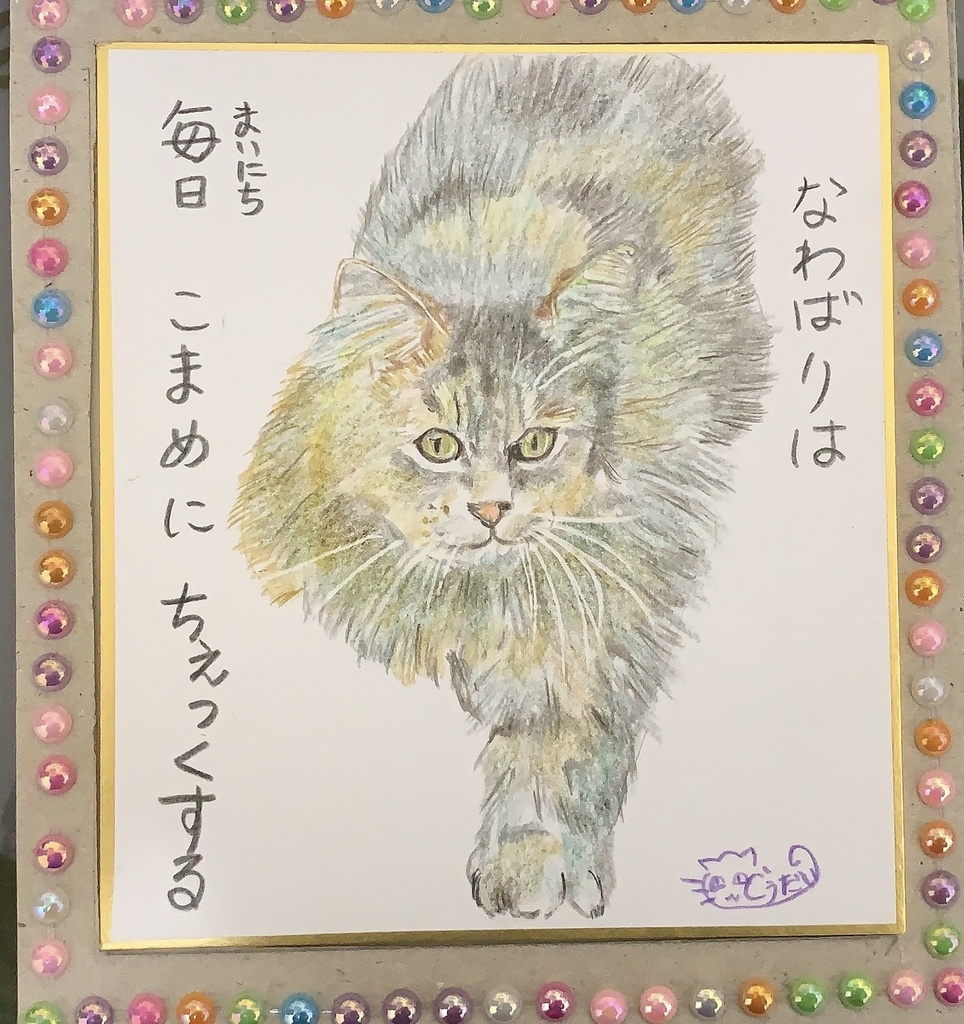 なわばりは
毎日 こまめに ちぇっくする
まいにち